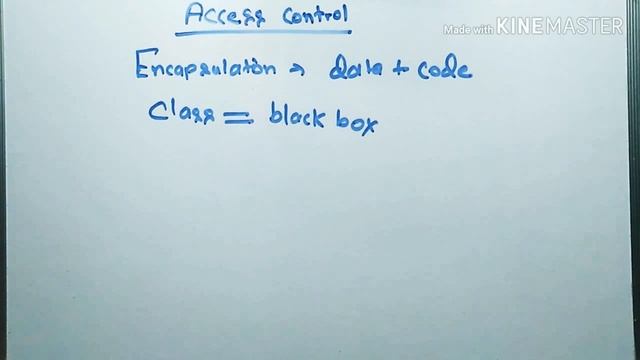 Access control
Made with KINEMASTER
Encapsulation → data + code
Class = black box